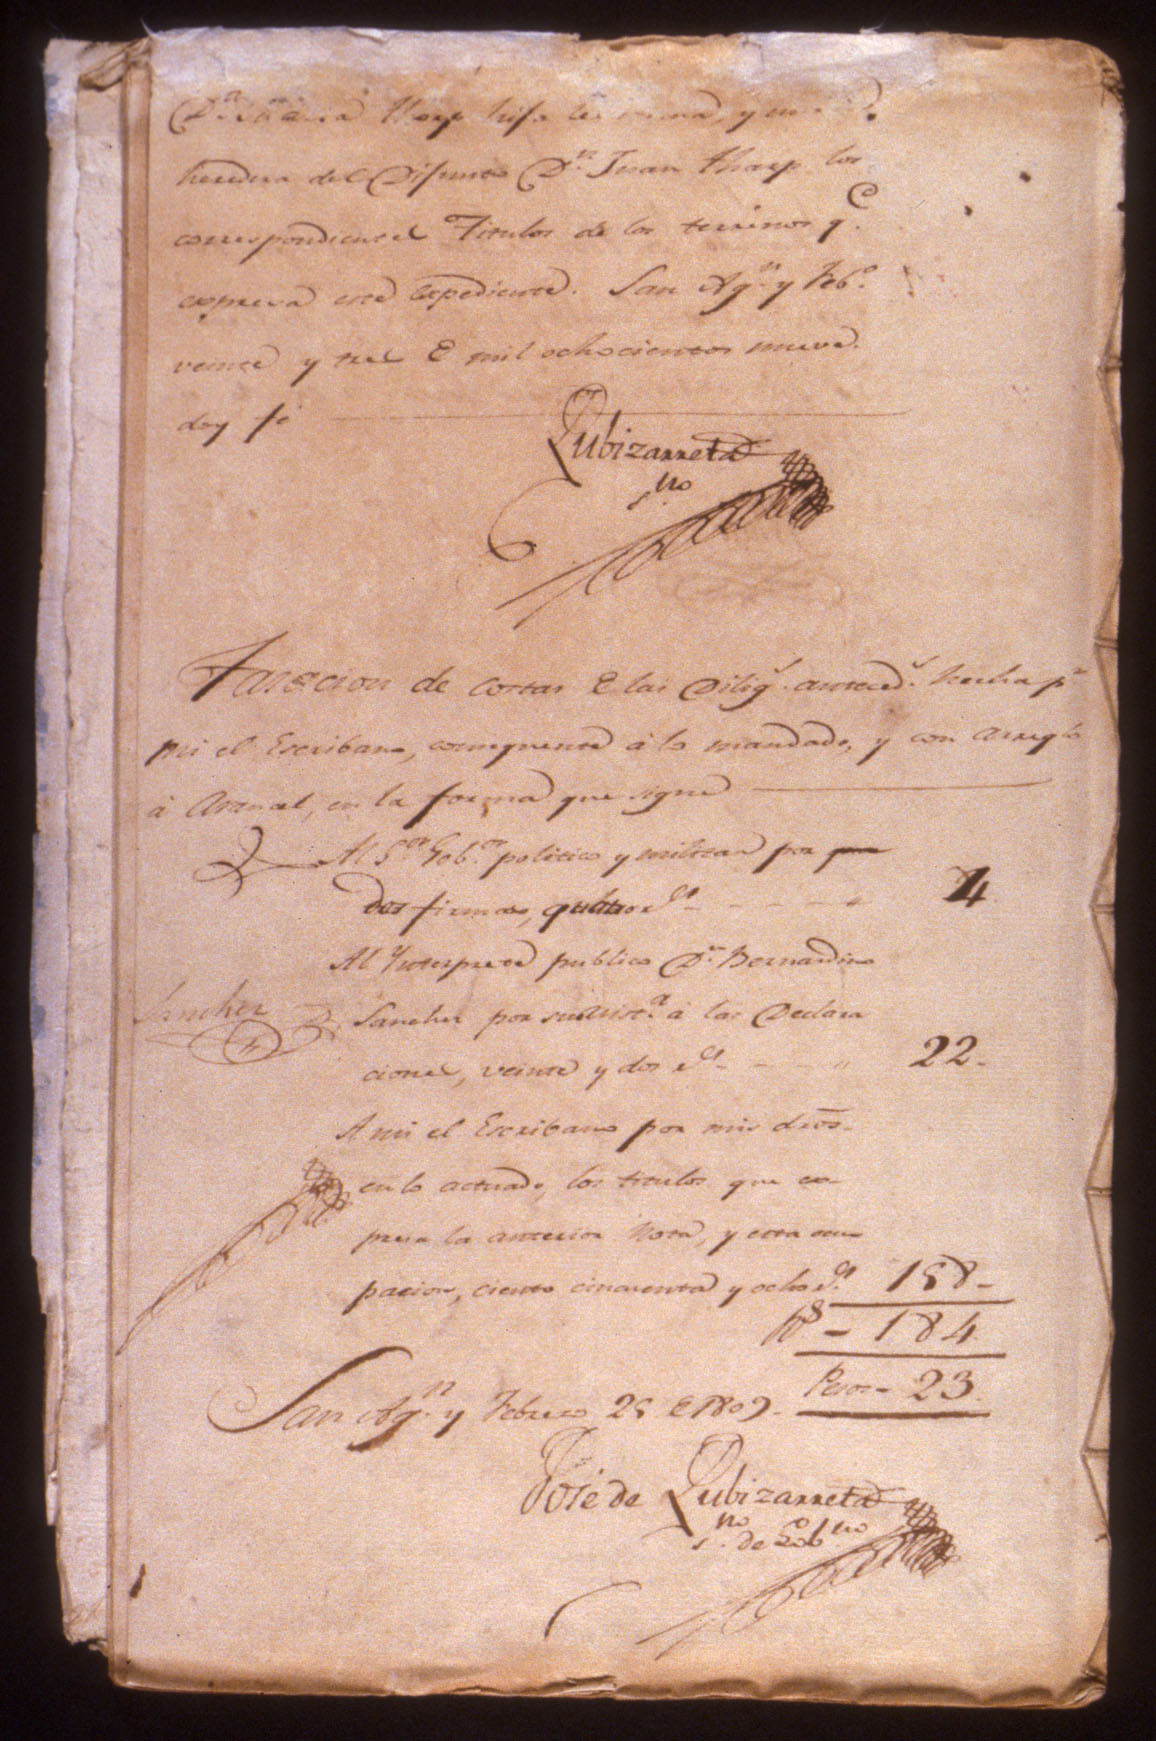 hija legitima, y
heredera del Difunto Dn. Juan Tharp los
correspondientes Titulos de los terrenos qe.
expresa este Expediente. San Agn. y Febo.
veinte y tres de mil ochocientos nueve.
doy fé
Zubizarreta
sno.
Tasacion de costas de las Diligs. anteceds. hecha pr.
mi el Escribano, consequente á lo mandado, y con arreglo
á Arancel, en la forma que sigue
Al Sor. Gobor. politico y militar por
dos firmas, quatro rs. 4
Al Interprete publico Dn. Bernardino
Sanchez
Sanchez por su asista. á las Declara
ciones, veinte y dos rs. 22-
A mi el Escribano por mis dros.
en lo actuado, los titulos que ex-
presa la anterior Nota, y esta ocu-
pacion, ciento cincuenta y ocho rs. 158-
Rs - 184
Pesos - 23.
San Agn. y Febrero 25 de 1809.
José de Zubizarreta
sno. de Gobno.